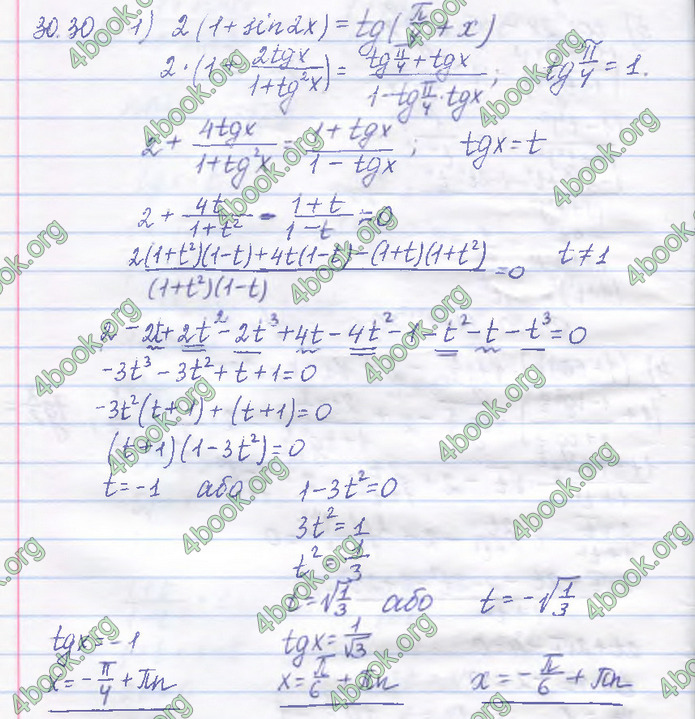 30.30 1) 2(1+sin2x)=tg(π/4+x)
2·(1+2tgx/(1+tg²x))=(tgπ/4+tgx)/(1-tgπ/4·tgx); tgπ/4=1.
2+4tgx/(1+tg²x)=(1+tgx)/(1-tgx); tgx=t
2+4t/(1+t²)-(1+t)/(1-t)=0
(2(1+t²)(1-t)+4t(1-t)-(1+t)(1+t²))/((1+t²)(1-t))=0 t≠1
2-2t+2t²-2t³+4t-4t²-1-t²-t-t³=0
-3t³-3t²+t+1=0
-3t²(t+1)+(t+1)=0
(t+1)(1-3t²)=0
t=-1 або 1-3t²=0
3t²=1
t²=1/3
t=√1/3 або t=-√1/3
tgx=-1 tgx=1/√3
x=-π/4+πn x=π/6+πn x=-π/6+πn
4book.org